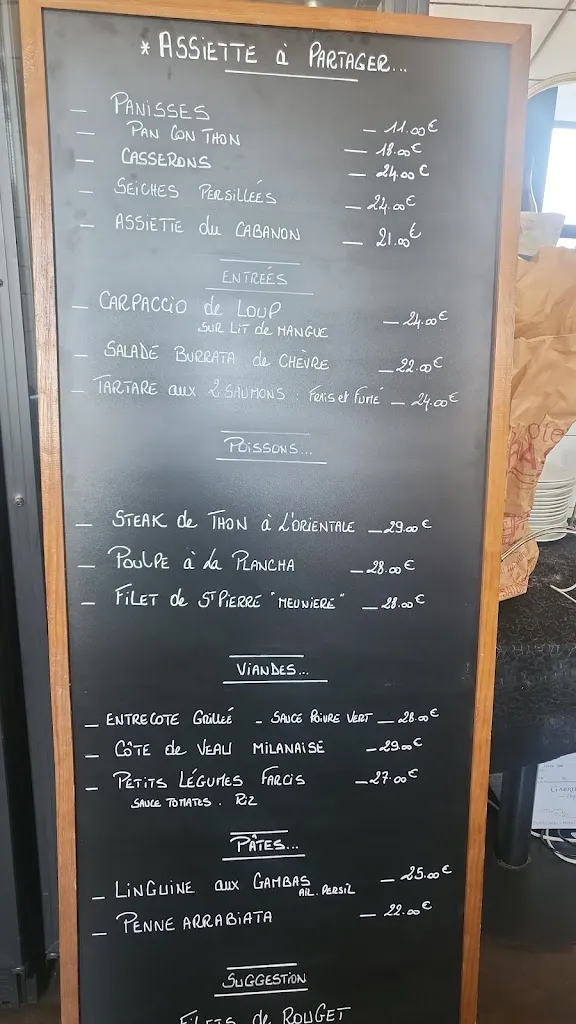 * ASSIETTE à PARTAGER...
— PANISSES — 11.00€
— PAN CON THON — 18.00€
— CASSERONS — 24.00€
— SEICHES PERSILLÉES — 24.00€
— ASSIETTE du CABANON — 21.00€
ENTREÉS
— CARPACCIO de LOUP — 24.00€
SUR LIT de MANGUE
— SALADE BURRATA de CHÈVRE — 22.00€
— TARTARE aux 2 SAUMONS : FRAIS et FUMÉ — 24.00€
POISSONS...
— STEAK de THON à L'ORIENTALE — 29.00€
— POULPE à La PLANCHA — 28.00€
— FILET de ST PIERRE "MEUNIERE" — 28.00€
VIANDES...
— ENTRECOTE GRILLEÉ - SAUCE POIVRE VERT — 28.00€
— CÔTE de VEAU MILANAISE — 29.00€
— PETITS LÉGUMES FARCIS — 27.00€
SAUCE TOMATES. RIZ
PÂTES...
— LINGUINE aux GAMBAS — 25.00€
AIL. PERSIL
— PENNE ARRABIATA — 22.00€
SUGGESTION
FILETS de ROUGET